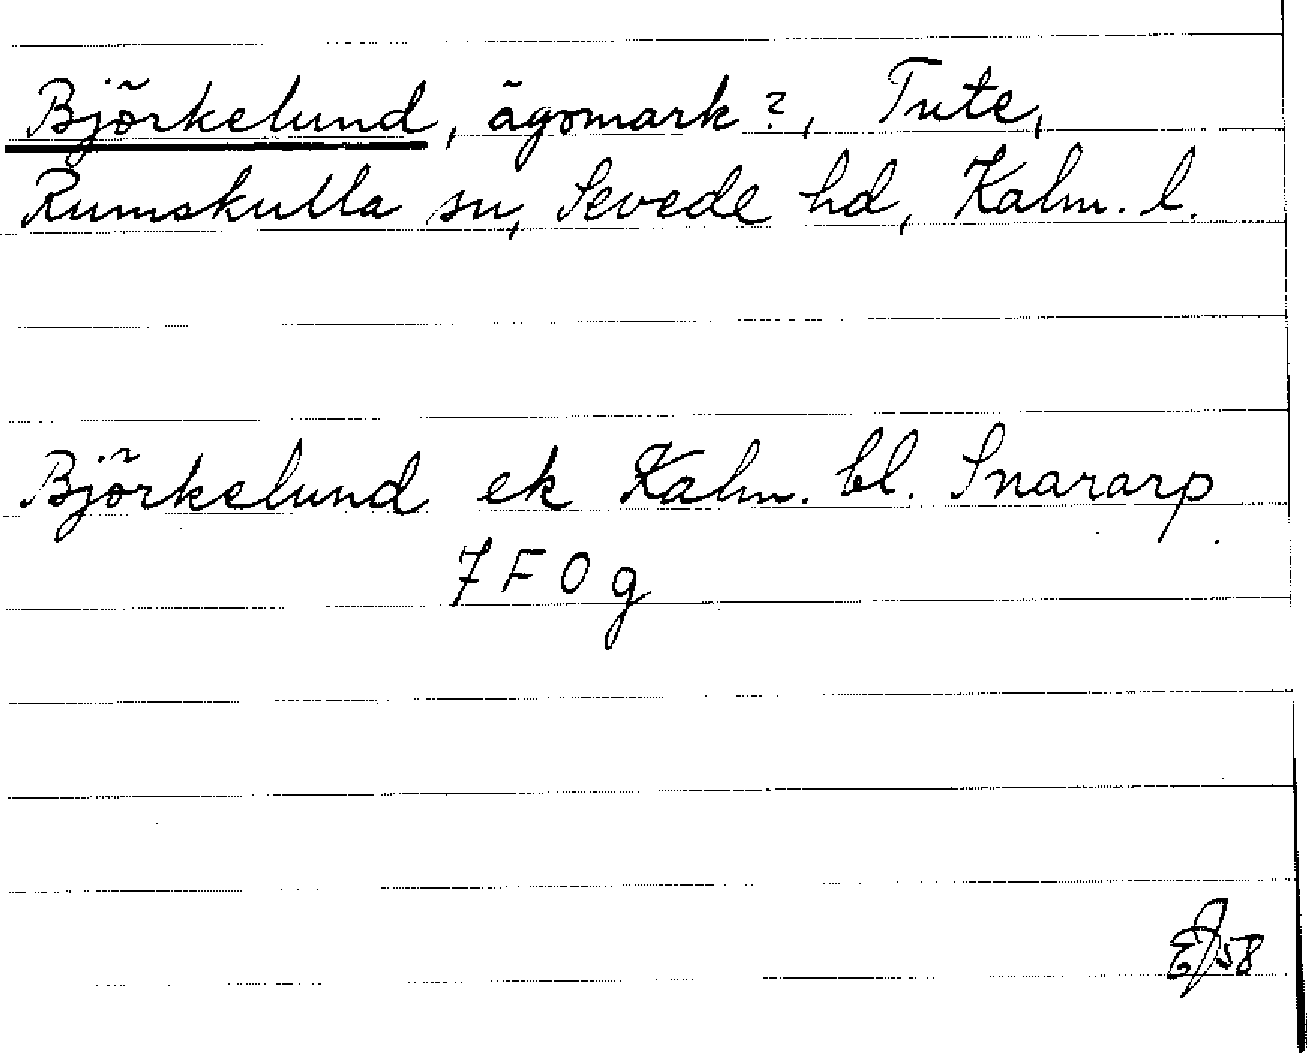 Björkelund, ägomark?, Tute,
Rumskulla sn, Sevede hd, Kalm. l.
Björkelund ek Kalm. bl. Snararp
7 F 0 g
EJ 58